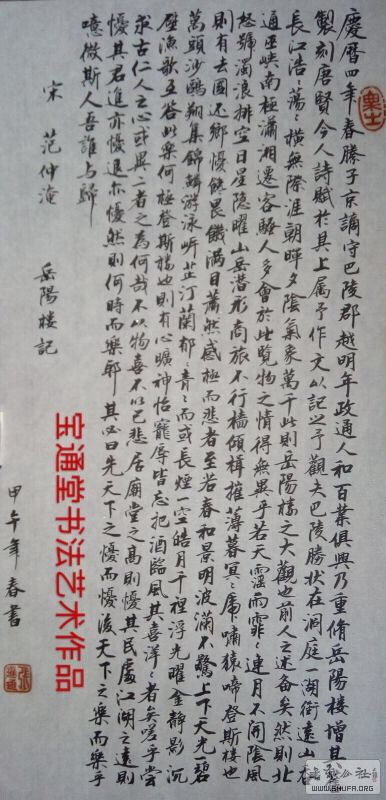 慶曆四年春滕子京謫守巴陵郡越明年政通人和百業俱興乃重脩岳陽樓增其
製刻唐賢今人詩賦於其上属予作文以記之予觀夫巴陵勝状在洞庭一湖銜遠山吞
長江浩々蕩々橫無際涯朝暉夕陰氣象萬千此則岳陽樓之大觀也前人之述备矣然則北
通巫峡南極瀟湘遷客騷人多會於此覽物之情得無異乎若天霪雨霏々連月不開陰風
怒號濁浪排空日星隐曜山岳潜形商旅不行檣傾楫摧薄暮冥々虎嘯猿啼登斯樓也
則有去國还鄉懮餒畏饑满目蕭然感極而悲者至若春和景明波瀾不驚上下天光一碧
萬頭沙鷗翔集錦鱗游泳岸芷汀蘭郁々青々而或長煙一空皓月千裡浮光曜金静影沉
壁漁歌互答此樂何極登斯樓也則有心曠神怡寵辱皆忘把酒臨風其喜洋々者矣嗟乎嘗
求古仁人之心或異二者之為何哉不以物喜不以己悲居廟堂之高則懮其民處江湖之遠則
懮其君進亦懮退亦懮然則何時而樂耶其必曰先天下之懮而懮後天下之樂而樂乎
噫微斯人吾誰与歸
宋 范仲淹 岳陽樓記
甲午年春書
宝通堂书法艺术作品
WWW.SHUFA.ORG